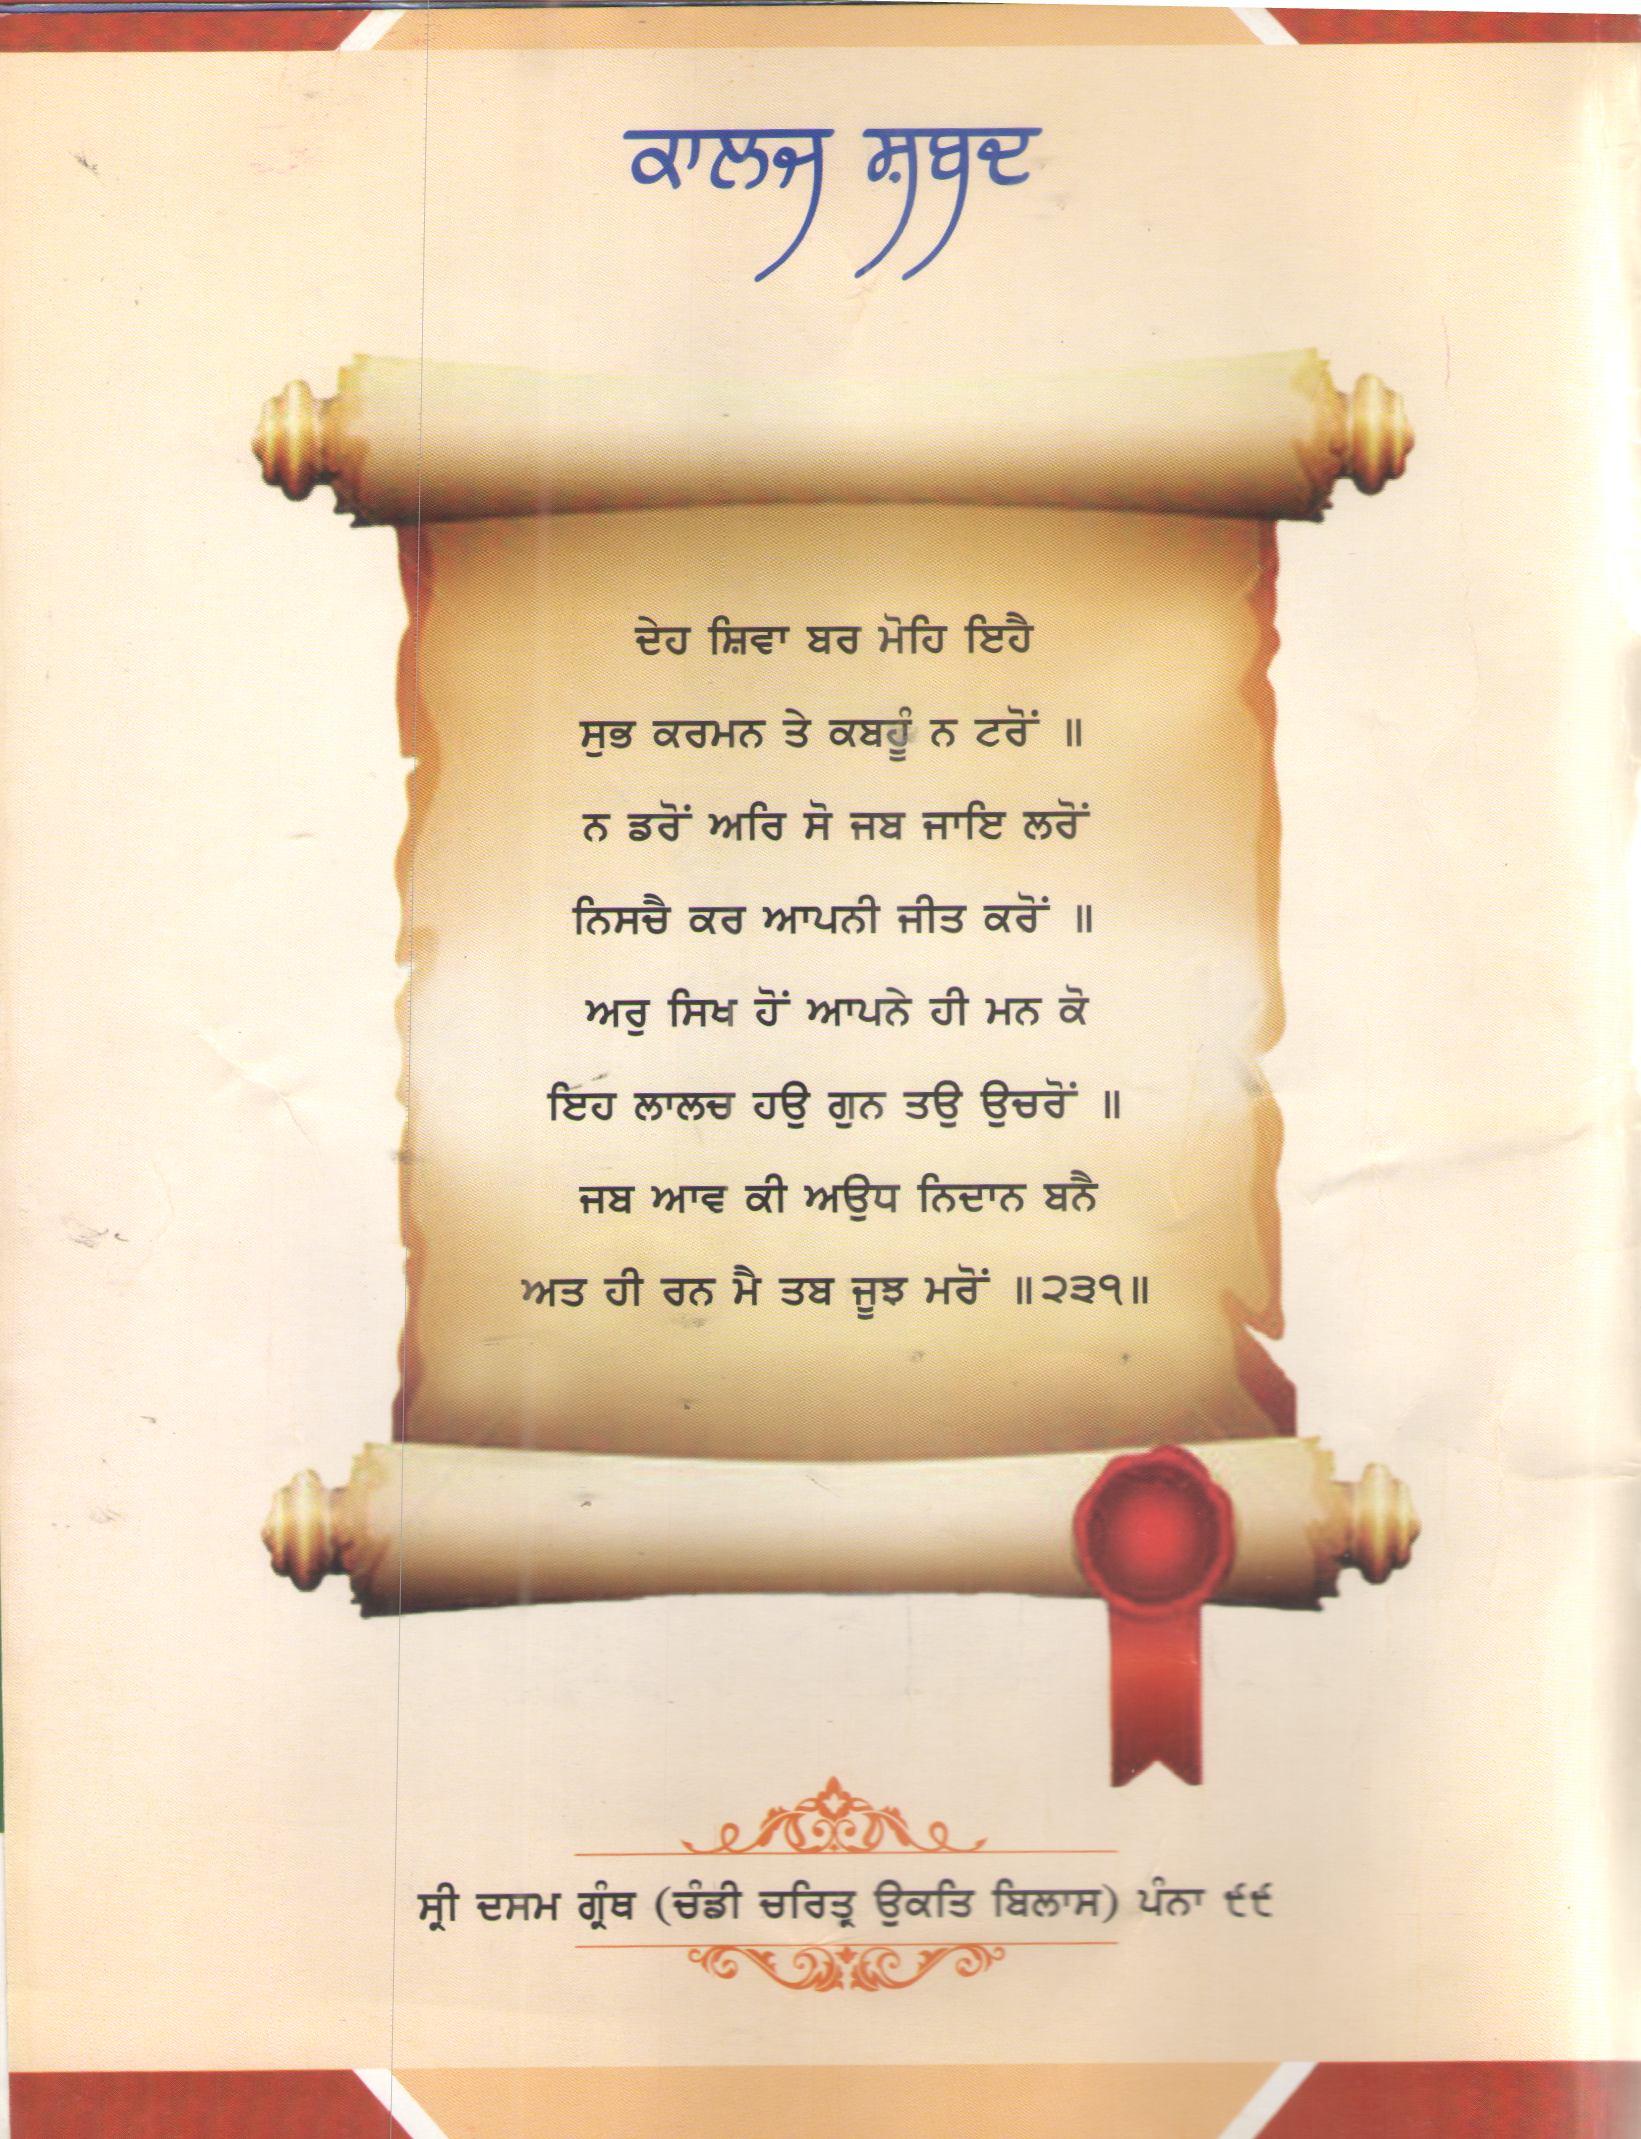 ਕਾਲਜ ਸ਼ਬਦ
ਦੇਹ ਸ਼ਿਵਾ ਬਰ ਮੋਹਿ ਇਹੈ
ਸੁਭ ਕਰਮਨ ਤੇ ਕਬਹੂੰ ਨ ਟਰੋਂ ॥
ਨ ਡਰੋਂ ਅਰਿ ਸੋ ਜਬ ਜਾਇ ਲਰੋਂ
ਨਿਸਚੈ ਕਰ ਆਪਨੀ ਜੀਤ ਕਰੋਂ ॥
ਅਰੁ ਸਿਖ ਹੋਂ ਆਪਨੇ ਹੀ ਮਨ ਕੋ
ਇਹ ਲਾਲਚ ਹਉ ਗੁਨ ਤਉ ਉਚਰੋਂ ॥
ਜਬ ਆਵ ਕੀ ਅਉਧ ਨਿਦਾਨ ਬਨੈ
ਅਤ ਹੀ ਰਨ ਮੈ ਤਬ ਜੂਝ ਮਰੋਂ ॥੨੩੧॥
ਸ੍ਰੀ ਦਸਮ ਗ੍ਰੰਥ (ਚੰਡੀ ਚਰਿਤ੍ਰ ਉਕਤਿ ਬਿਲਾਸ) ਪੰਨਾ ੯੯